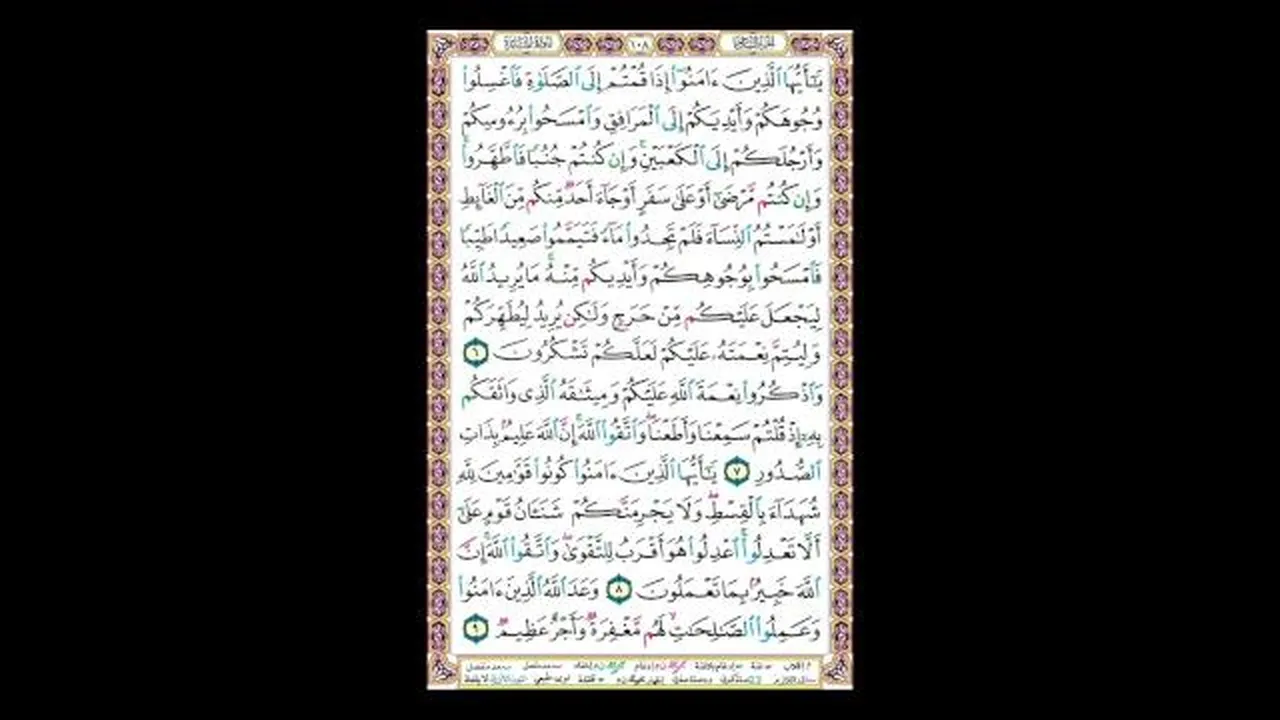 سورة المائدة ١٠٨ الجزء السادس
يَٰٓأَيُّهَا ٱلَّذِينَ ءَامَنُوٓا۟ إِذَا قُمْتُمْ إِلَى ٱلصَّلَوٰةِ فَٱغْسِلُوا۟
وُجُوهَكُمْ وَأَيْدِيَكُمْ إِلَى ٱلْمَرَافِقِ وَٱمْسَحُوا۟ بِرُءُوسِكُمْ
وَأَرْجُلَكُمْ إِلَى ٱلْكَعْبَيْنِ ۚ وَإِن كُنتُمْ جُنُبًا فَٱطَّهَّرُوا۟ ۚ
وَإِن كُنتُم مَّرْضَىٰٓ أَوْ عَلَىٰ سَفَرٍ أَوْ جَآءَ أَحَدٌ مِّنكُم مِّنَ ٱلْغَآئِطِ
أَوْ لَٰمَسْتُمُ ٱلنِّسَآءَ فَلَمْ تَجِدُوا۟ مَآءً فَتَيَمَّمُوا۟ صَعِيدًا طَيِّبًا
فَٱمْسَحُوا۟ بِوُجُوهِكُمْ وَأَيْدِيكُم مِّنْهُ ۚ مَا يُرِيدُ ٱللَّهُ
لِيَجْعَلَ عَلَيْكُم مِّنْ حَرَجٍ وَلَٰكِن يُرِيدُ لِيُطَهِّرَكُمْ
وَلِيُتِمَّ نِعْمَتَهُۥ عَلَيْكُمْ لَعَلَّكُمْ تَشْكُرُونَ ٦
وَٱذْكُرُوا۟ نِعْمَةَ ٱللَّهِ عَلَيْكُمْ وَمِيثَٰقَهُ ٱلَّذِى وَاثَقَكُم
بِهِۦٓ إِذْ قُلْتُمْ سَمِعْنَا وَأَطَعْنَا ۖ وَٱتَّقُوا۟ ٱللَّهَ ۚ إِنَّ ٱللَّهَ عَلِيمٌۢ بِذَاتِ
ٱلصُّدُورِ ٧ يَٰٓأَيُّهَا ٱلَّذِينَ ءَامَنُوا۟ كُونُوا۟ قَوَّٰمِينَ لِلَّهِ
شُهَدَآءَ بِٱلْقِسْطِ ۖ وَلَا يَجْرِمَنَّكُمْ شَنَـَٔانُ قَوْمٍ عَلَىٰٓ
أَلَّا تَعْدِلُوا۟ ۚ ٱعْدِلُوا۟ هُوَ أَقْرَبُ لِلتَّقْوَىٰ ۖ وَٱتَّقُوا۟ ٱللَّهَ ۚ إِنَّ
ٱللَّهَ خَبِيرٌۢ بِمَا تَعْمَلُونَ ٨ وَعَدَ ٱللَّهُ ٱلَّذِينَ ءَامَنُوا۟
وَعَمِلُوا۟ ٱلصَّٰلِحَٰتِ ۙ لَهُم مَّغْفِرَةٌ وَأَجْرٌ عَظِيمٌ ٩